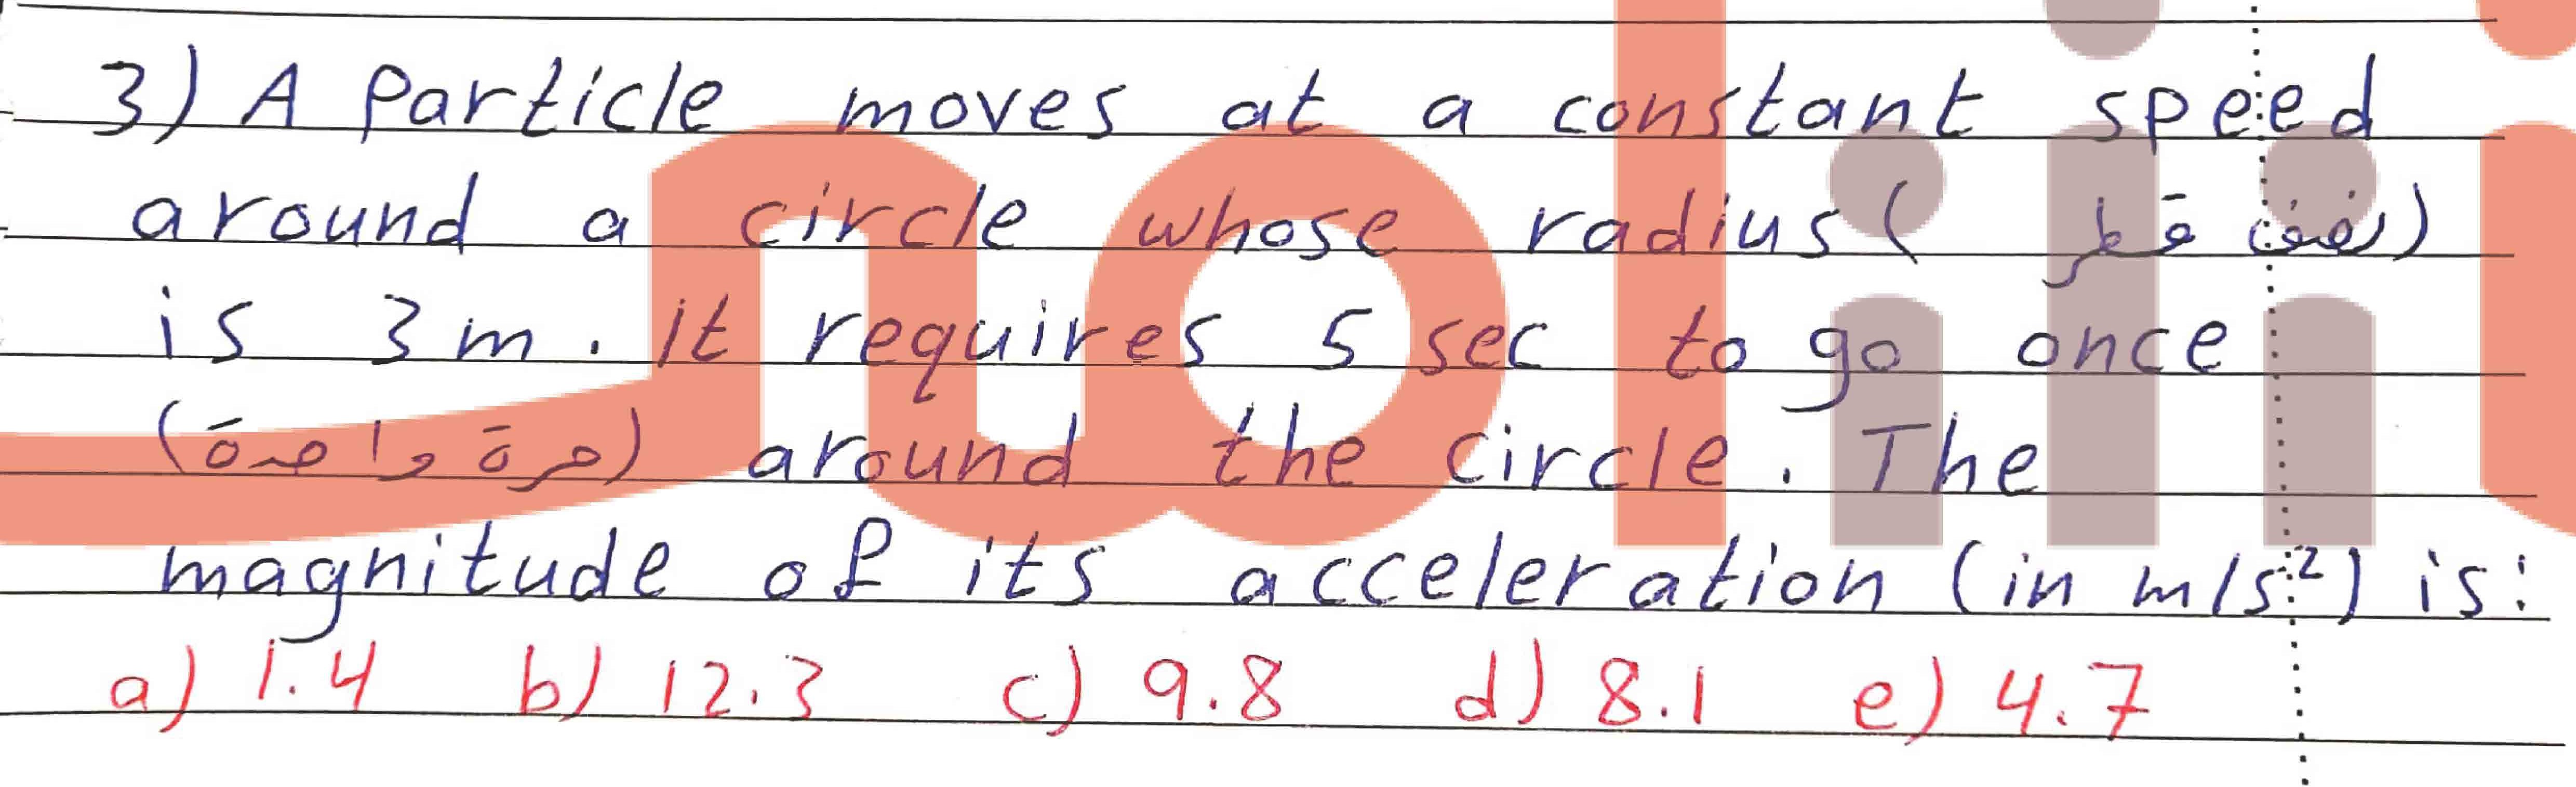 3) A Particle moves at a constant speed
around a circle whose radius (نصف قطر)
is 3 m. it requires 5 sec to go once
(مرة واحدة) around the circle. The
magnitude of its acceleration (in m/s²) is:
a) 1.4 b) 12.3 c) 9.8 d) 8.1 e) 4.7